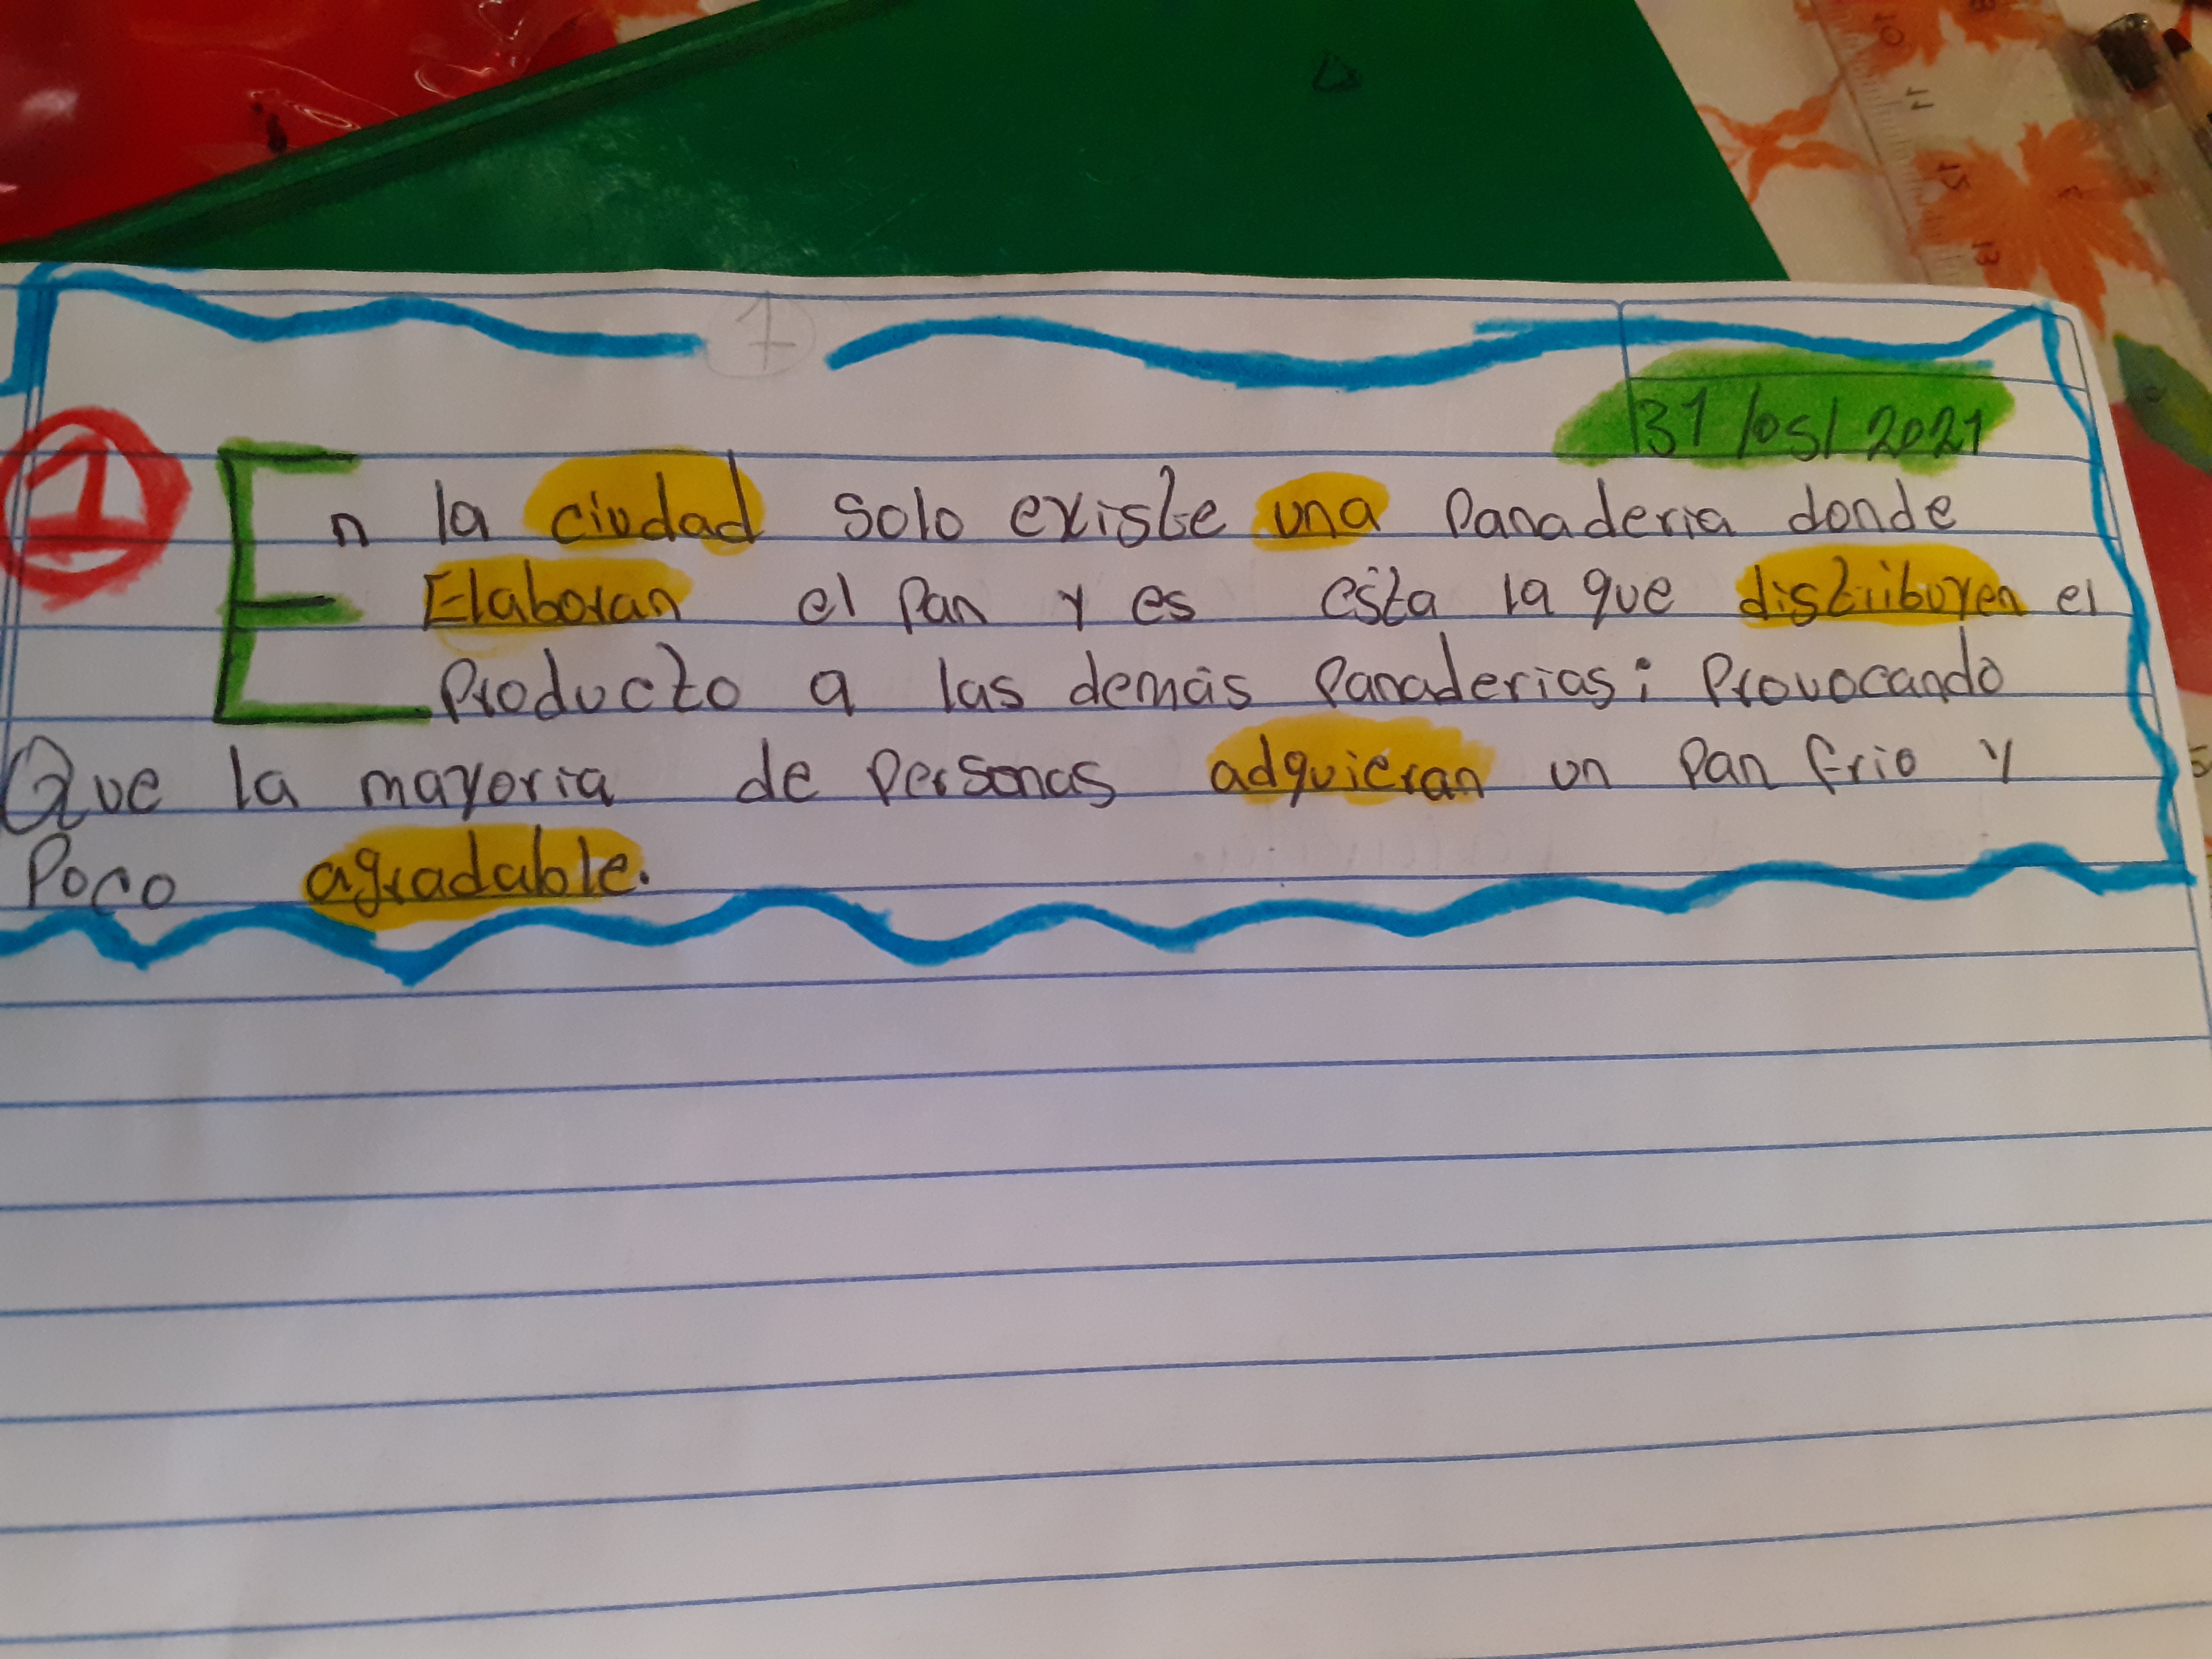 1
31/05/2021
1 En la ciudad solo existe una Panaderia donde
Elaboran el Pan y es esta la que distribuyen el
Producto a las demás Panaderias; Provocando
Que la mayoria de Personas adquieran un Pan frio y
Poco agradable.
10
11
12
13